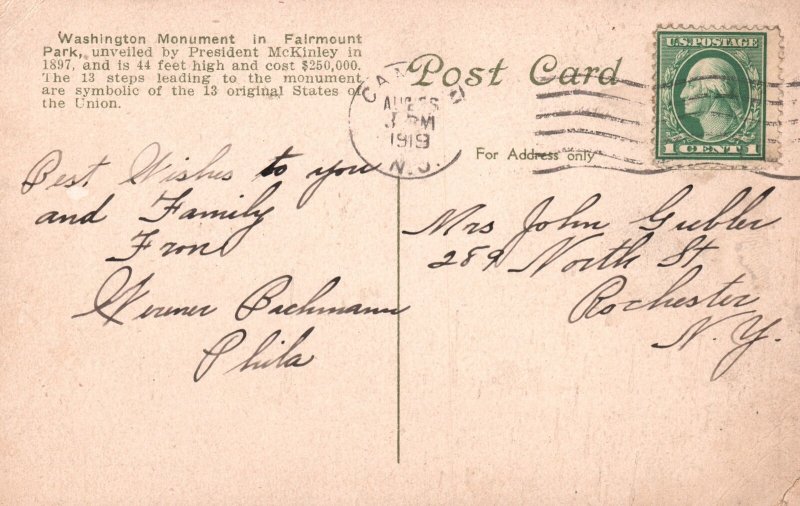 Washington Monument in Fairmount
Park, unveiled by President McKinley in
1897, and is 44 feet high and cost $250,000.
The 13 steps leading to the monument
are symbolic of the 13 original States of
the Union.
Post Card
For Address only
U.S. POSTAGE
1 CENT 1
AUG
PM
1919
N.J.
Best Wishes to you
and Family
From
Werner Bachmann
Phila
Mrs John Gubler
289 North St
Rochester
N. Y.